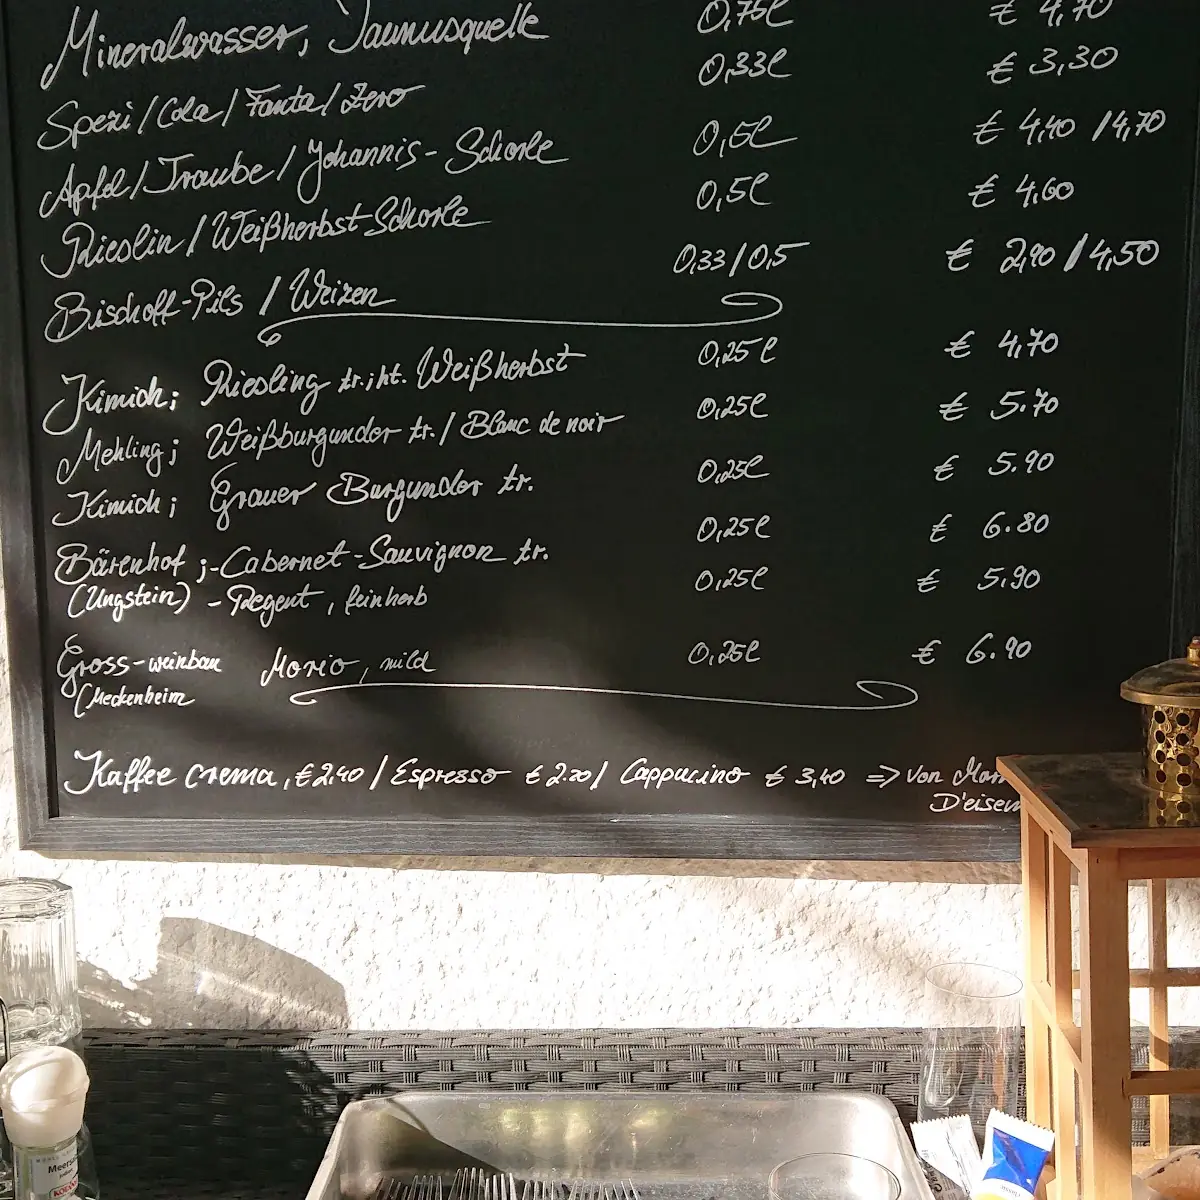 Mineralwasser, Taunusquelle 0,75l € 4,70
Spezi/Cola/Fanta/Zero 0,33l € 3,30
Apfel/Traube/Johannis-Schorle 0,5l € 4,40 /4,70
Rieslin/Weißherbst-Schorle 0,5l € 4,60
Bischoff-Pils / Weizen 0,33/0,5 € 2,90 /4,50
Kimich; Riesling tr.;ht. Weißherbst 0,25l € 4,70
Mehling; Weißburgunder tr./Blanc de noir 0,25l € 5.70
Kimich; Grauer Burgunder tr. 0,25l € 5.90
Bärenhof ;-Cabernet-Sauvignon tr. 0,25l € 6.80
(Ungstein) - Regent, feinherb 0,25l € 5.90
Gross-weinbau Morio, mild 0,25l € 6.90
(Meckenheim
Kaffee crema, € 2,40 / Espresso € 2.20/ Cappucino € 3,40 => von
D'eisem
Meersalz